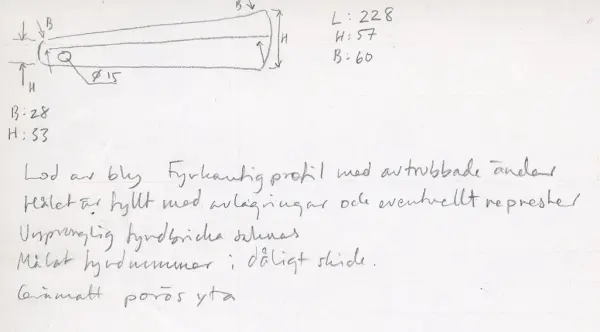 B
B
H
H
Ø 15
L: 228
H: 57
B: 60
B: 28
H: 33
Lod av bly Fyrkantig profil med avtrubbade ändar
Hålet är fyllt med avlagringar och eventuellt represter
Ursprunglig fyndbricka saknas
Målat fyndnummer i dåligt skick.
porös yta